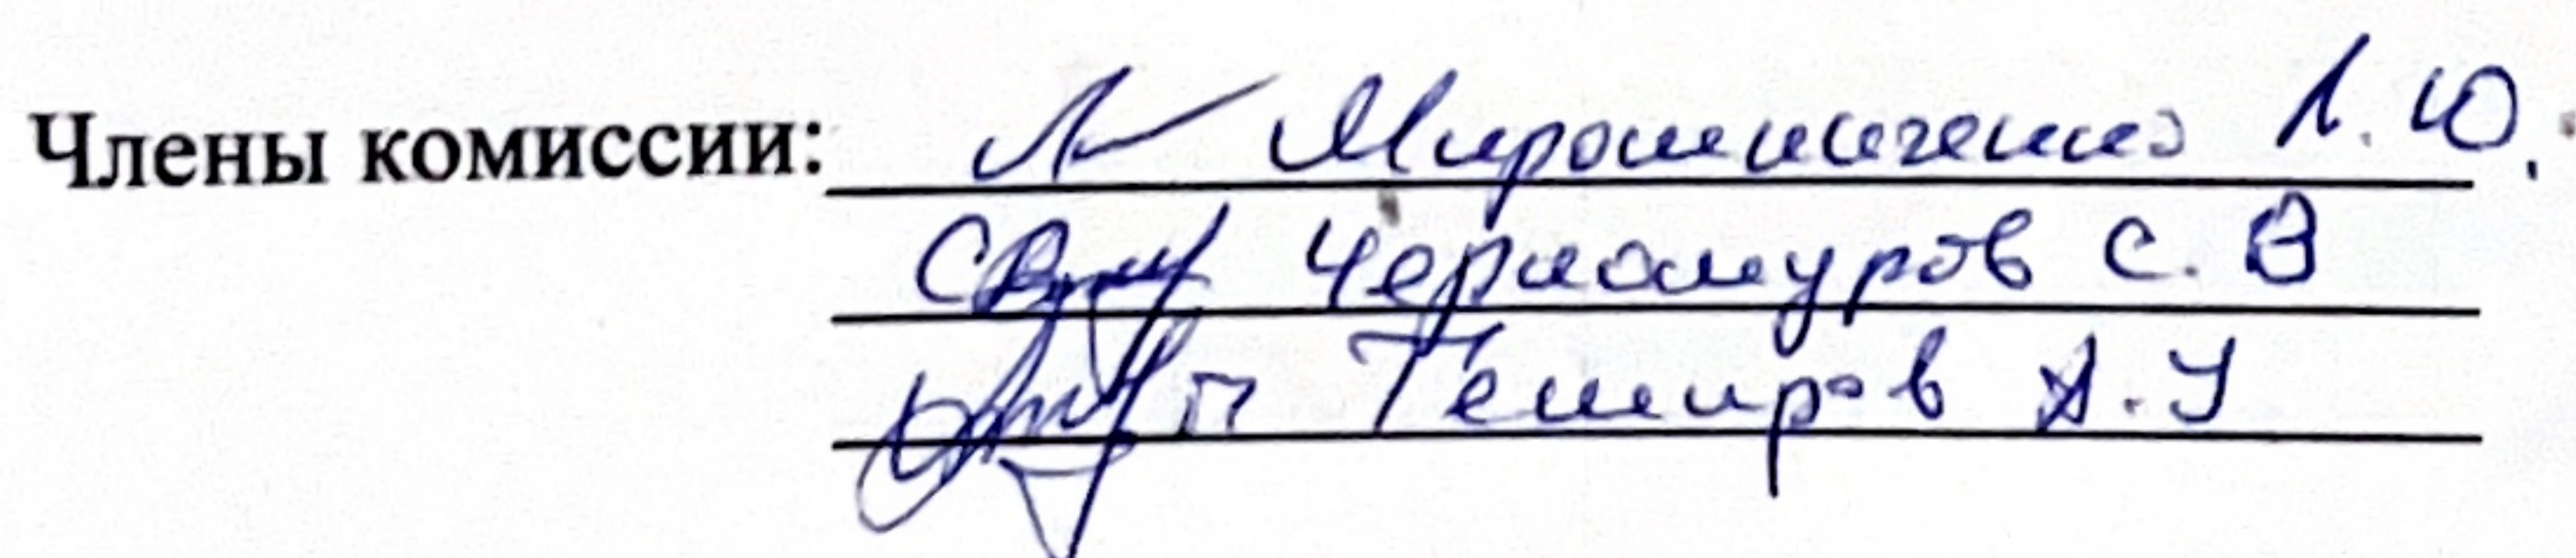 Члены комиссии: Мирошниченко Л. Ю.
Черномуров С. В
Темиров А. У